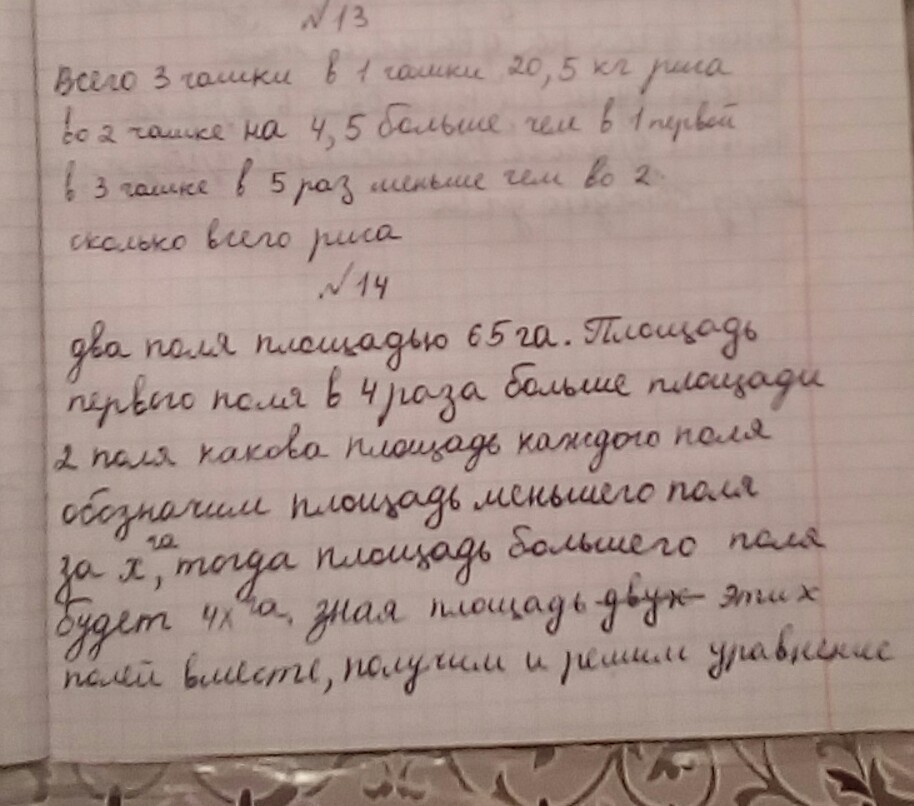 №13
Всего 3 чашки в 1 чашки 20,5 кг риса
во 2 чашке на 4,5 больше чем в 1 первой
в 3 чашке в 5 раз меньше чем во 2.
сколько всего риса
№14
два поля площадью 65 га. Площадь
первого поля в 4 раза больше площади
2 поля какова площадь каждого поля
обозначим площадь меньшего поля
за х га, тогда площадь большего поля
будет 4х га. зная площадь двух этих
полей вместе, получим и решим уравнение